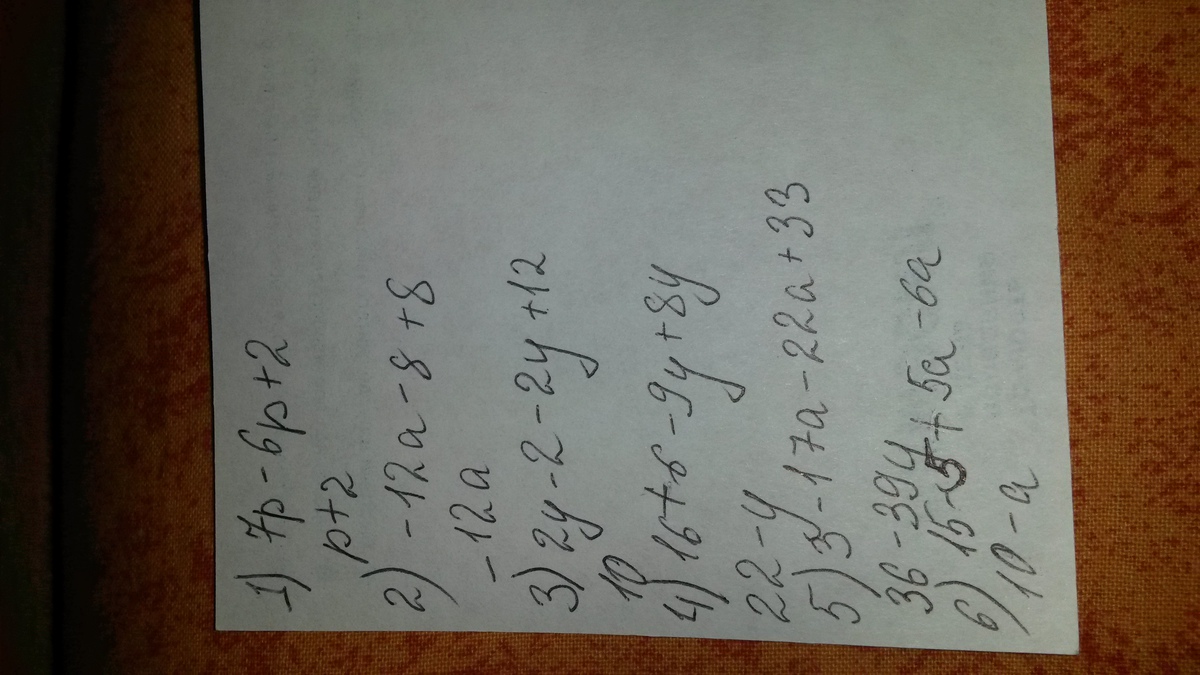 1) 7p-6p+2
p+2
2) -12a-8+8
-12a
3) 2y-2-2y+12
10
4) 16+6-9y+8y
22-y
5) 3-17a-22a+33
36-39y
6) 15-5+5a-6a
10-a